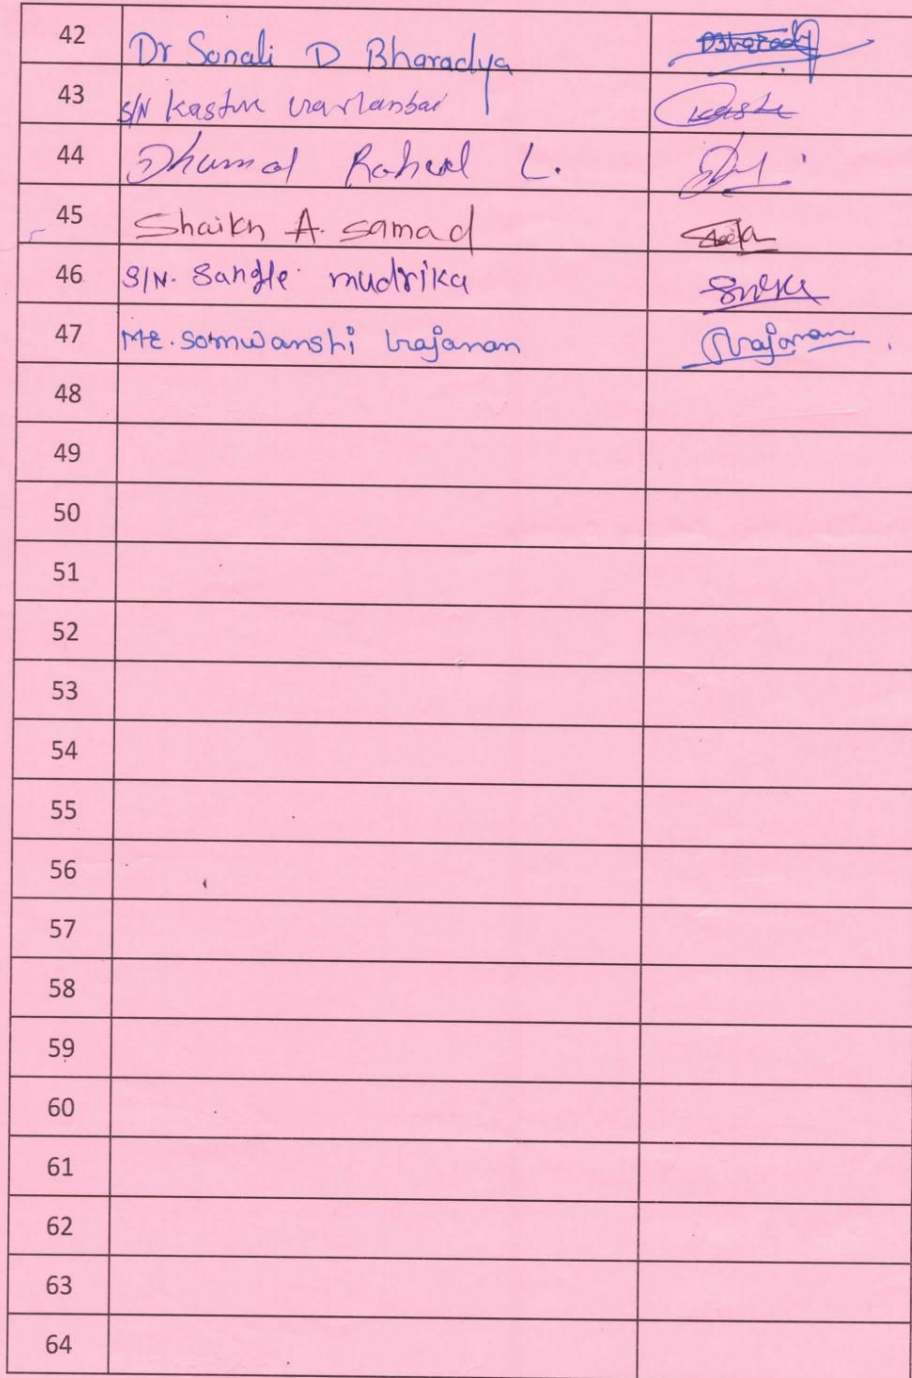 42 Dr Sonali D Bharadya
43 S/N Kasture
44 Dhumal Rahul L.
45 Shaikh A. samad
46 S/N. Sangle mudrika
47 Mr. Somwanshi Gajanan Gajanan
48
49
50
51
52
53
54
55
56
57
58
59
60
61
62
63
64